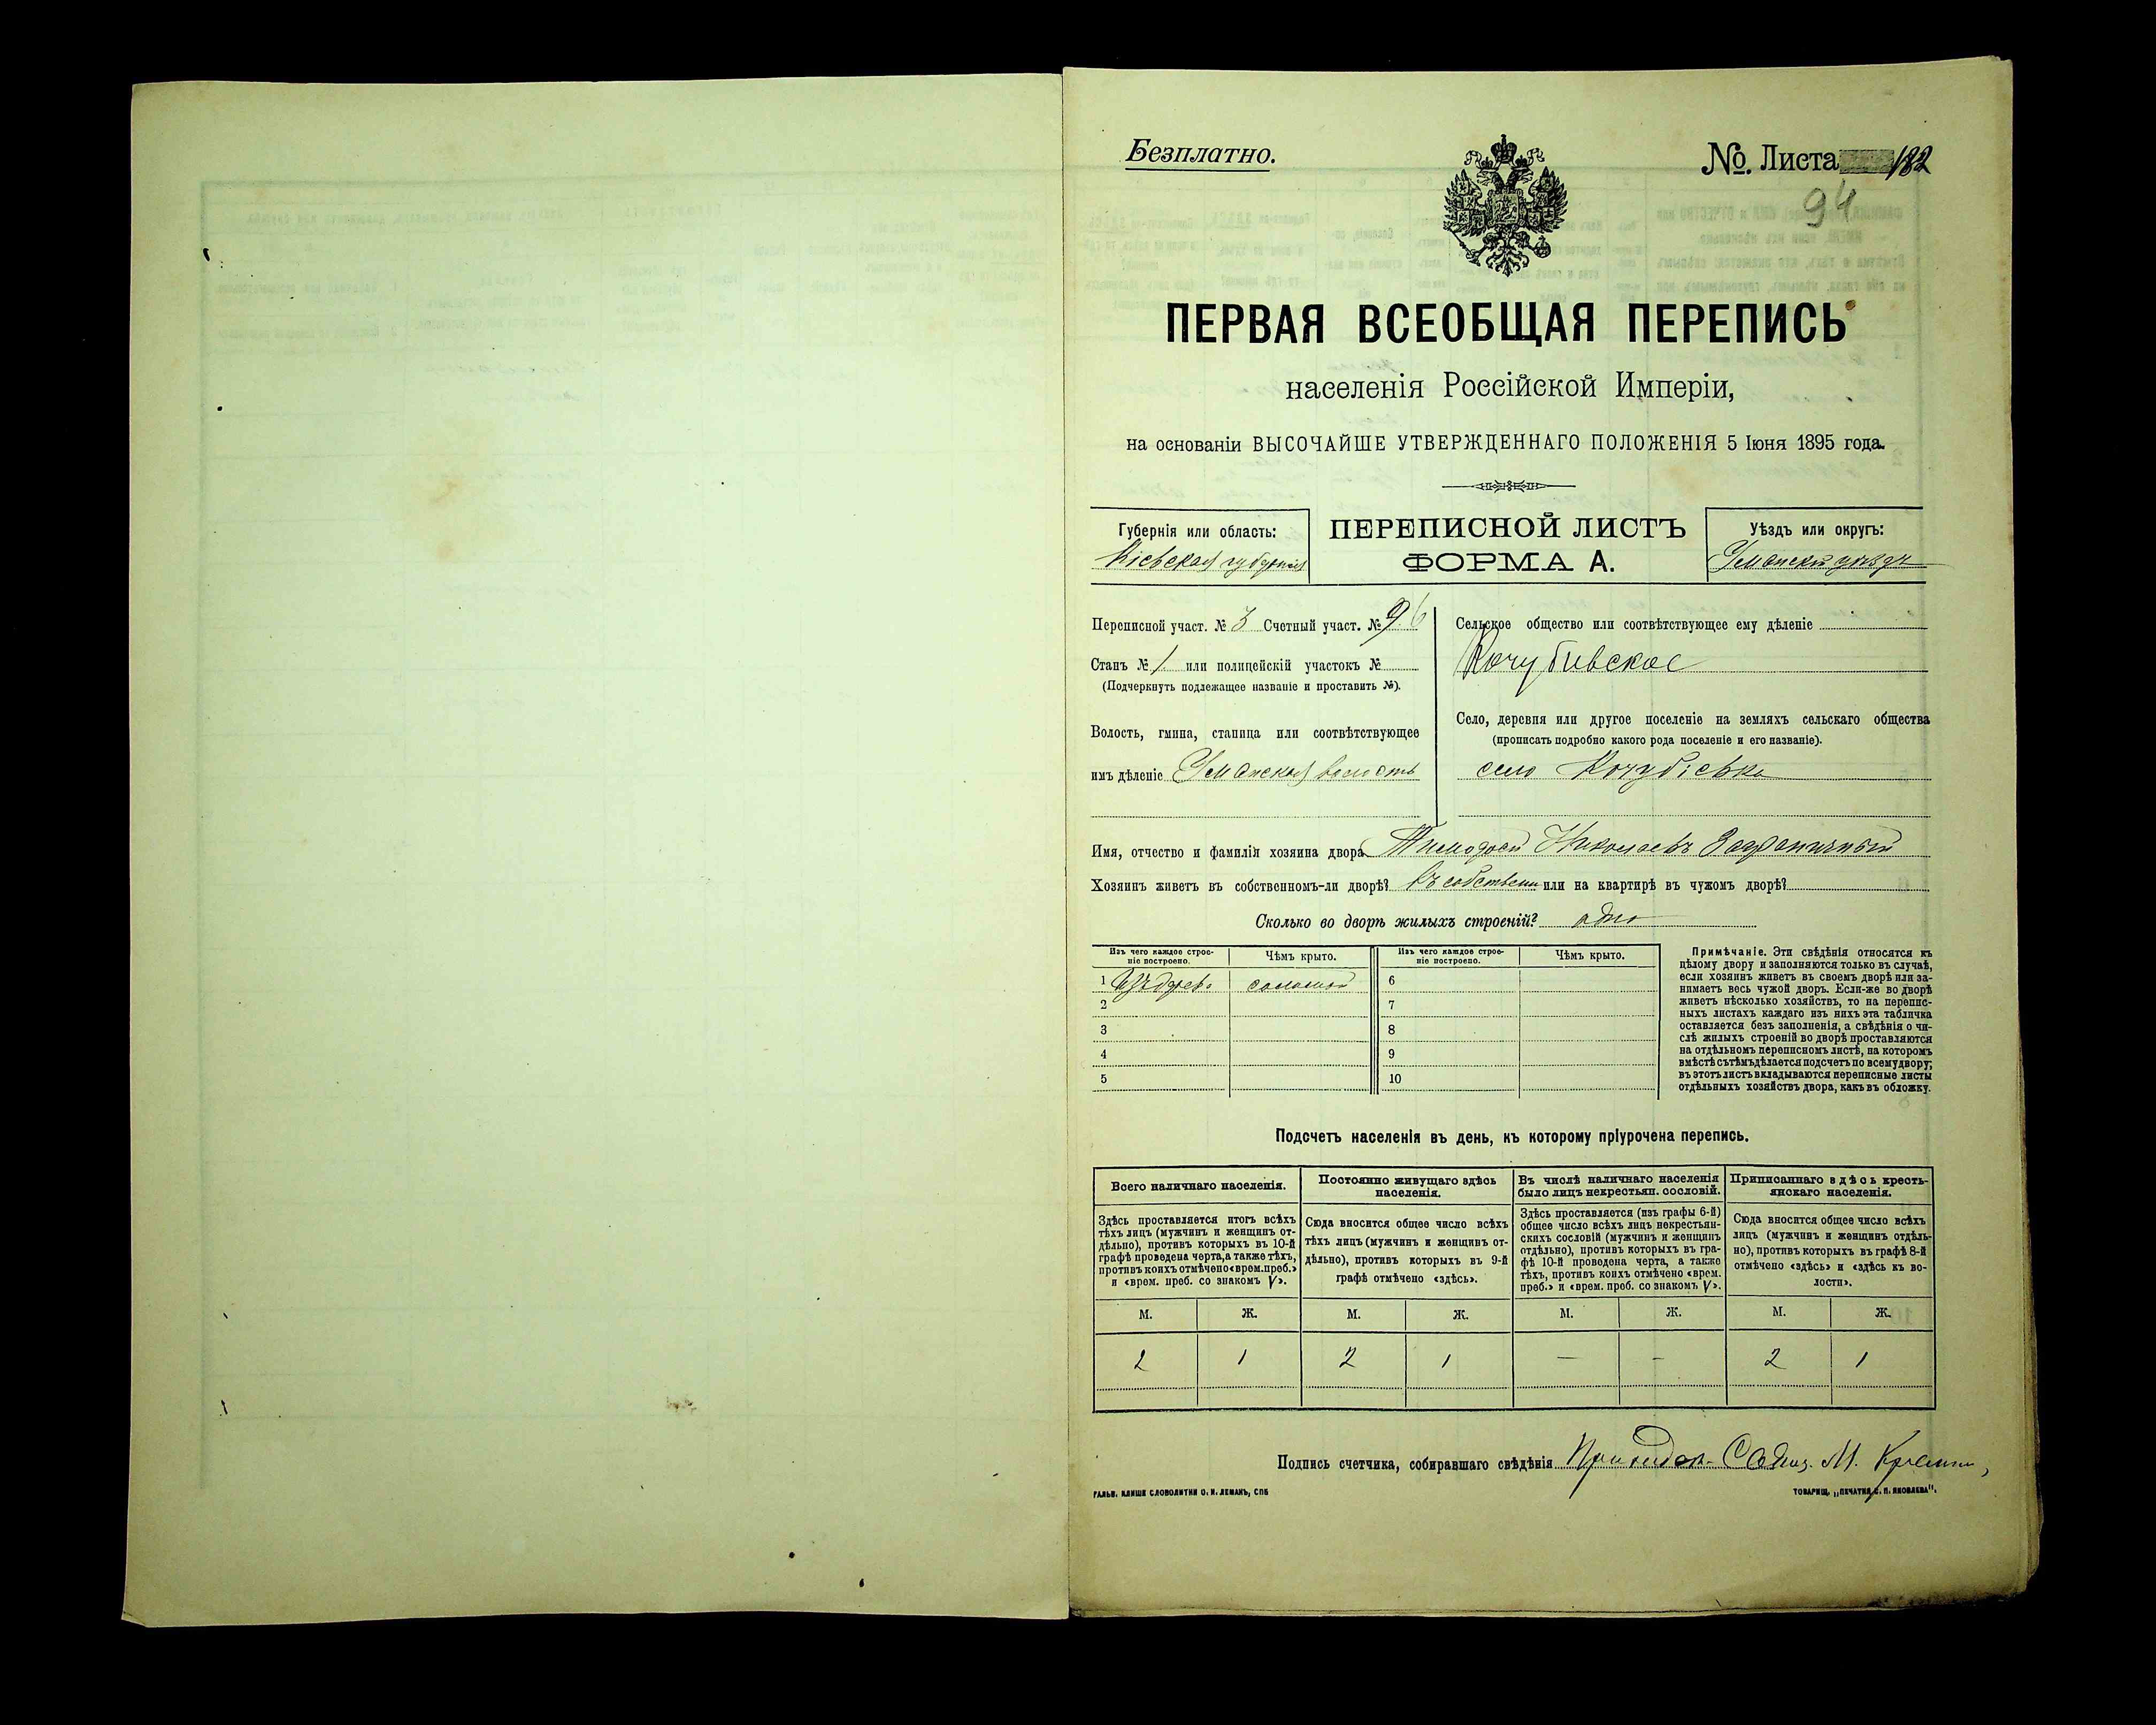 Безплатно.
№. Листа 182
94
ПЕРВАЯ ВСЕОБЩАЯ ПЕРЕПИСЬ
населенія Россійской Имперіи,
на основаніи ВЫСОЧАЙШЕ УТВЕРЖДЕННАГО ПОЛОЖЕНІЯ 5 Іюня 1895 года.
Губернія или область:
Кіевская губернія
ПЕРЕПИСНОЙ ЛИСТЪ
ФОРМА А.
Уѣздъ или округъ:
Уманскій уѣздъ
Переписной участ. № 3 Счетный участ. № 96
Станъ № 1 или полицейскій участокъ №
(Подчеркнуть подлежащее названіе и проставить №).
Волость, гмина, станица или соотвѣтствующее
имъ дѣленіе Уманская волость
Сельское общество или соотвѣтствующее ему дѣленіе
Кочубивское
Село, деревня или другое поселеніе на земляхъ сельскаго общества
(прописать подробно какого рода поселеніе и его названіе).
село Кочубіевка
Имя, отчество и фамилія хозяина двора Тимофей Николаевъ Заграничный
Хозяинъ живетъ въ собственномъ-ли дворѣ? въ собствен или на квартирѣ въ чужомъ дворѣ?
Сколько во дворѣ жилыхъ строеній? одно
Изъ чего каждое строе-
ніе построено.
Чѣмъ крыто.
Изъ чего каждое строе-
ніе построено.
Чѣмъ крыто.
1 Изъ дерев. соломой 6
2 7
3 8
4 9
5 10
Примѣчаніе. Эти свѣдѣнія относятся къ
цѣлому двору и заполняются только въ случаѣ,
если хозяинъ живетъ въ своемъ дворѣ или за-
нимаетъ весь чужой дворъ. Если-же во дворѣ
живетъ нѣсколько хозяйствъ, то на перепис-
ныхъ листахъ каждаго изъ нихъ эта табличка
оставляется безъ заполненія, а свѣдѣнія о чи-
слѣ жилыхъ строеній во дворѣ проставляются
на отдѣльномъ переписномъ листѣ, на которомъ
вмѣстѣ съ тѣмъ дѣлается подсчетъ по всему двору;
въ этотъ листъ вкладываются переписные листы
отдѣльныхъ хозяйствъ двора, какъ въ обложку.
Подсчетъ населенія въ день, къ которому пріурочена перепись.
Всего наличнаго населенія.
Здѣсь проставляется итогъ всѣхъ
тѣхъ лицъ (мужчинъ и женщинъ от-
дѣльно), противъ которыхъ въ 10-й
графѣ проведена черта, а также тѣхъ,
противъ коихъ отмѣчено «врем. преб.»
и «врем. преб. со знакомъ V».
Постоянно живущаго здѣсь
населенія.
Сюда вносится общее число всѣхъ
тѣхъ лицъ (мужчинъ и женщинъ от-
дѣльно), противъ которыхъ въ 9-й
графѣ отмѣчено «здѣсь».
Въ числѣ наличнаго населенія
было лицъ некрестьян. сословій.
Здѣсь проставляется (изъ графы 6-й)
общее число всѣхъ лицъ некрестьян-
скихъ сословій (мужчинъ и женщинъ
отдѣльно), противъ которыхъ въ гра-
фѣ 10-й проведена черта, а также
тѣхъ, противъ коихъ отмѣчено «врем.
преб.» и «врем. преб. со знакомъ V».
Приписаннаго здѣсь кресть-
янскаго населенія.
Сюда вносится общее число всѣхъ
лицъ (мужчинъ и женщинъ отдѣль-
но), противъ которыхъ въ графѣ 8-й
отмѣчено «здѣсь» и «здѣсь къ во-
лости».
М. Ж. М. Ж. М. Ж. М. Ж.
2 1 2 1 — — 2 1
Подпись счетчика, собиравшаго свѣдѣнія М.
ГАЛЬВ. КЛИШЕ СЛОВОЛИТНИ О. И. ЛЕМАНЪ, СПБ
ТОВАРИЩ. „ПЕЧАТНЯ С. П. ЯКОВЛЕВА".